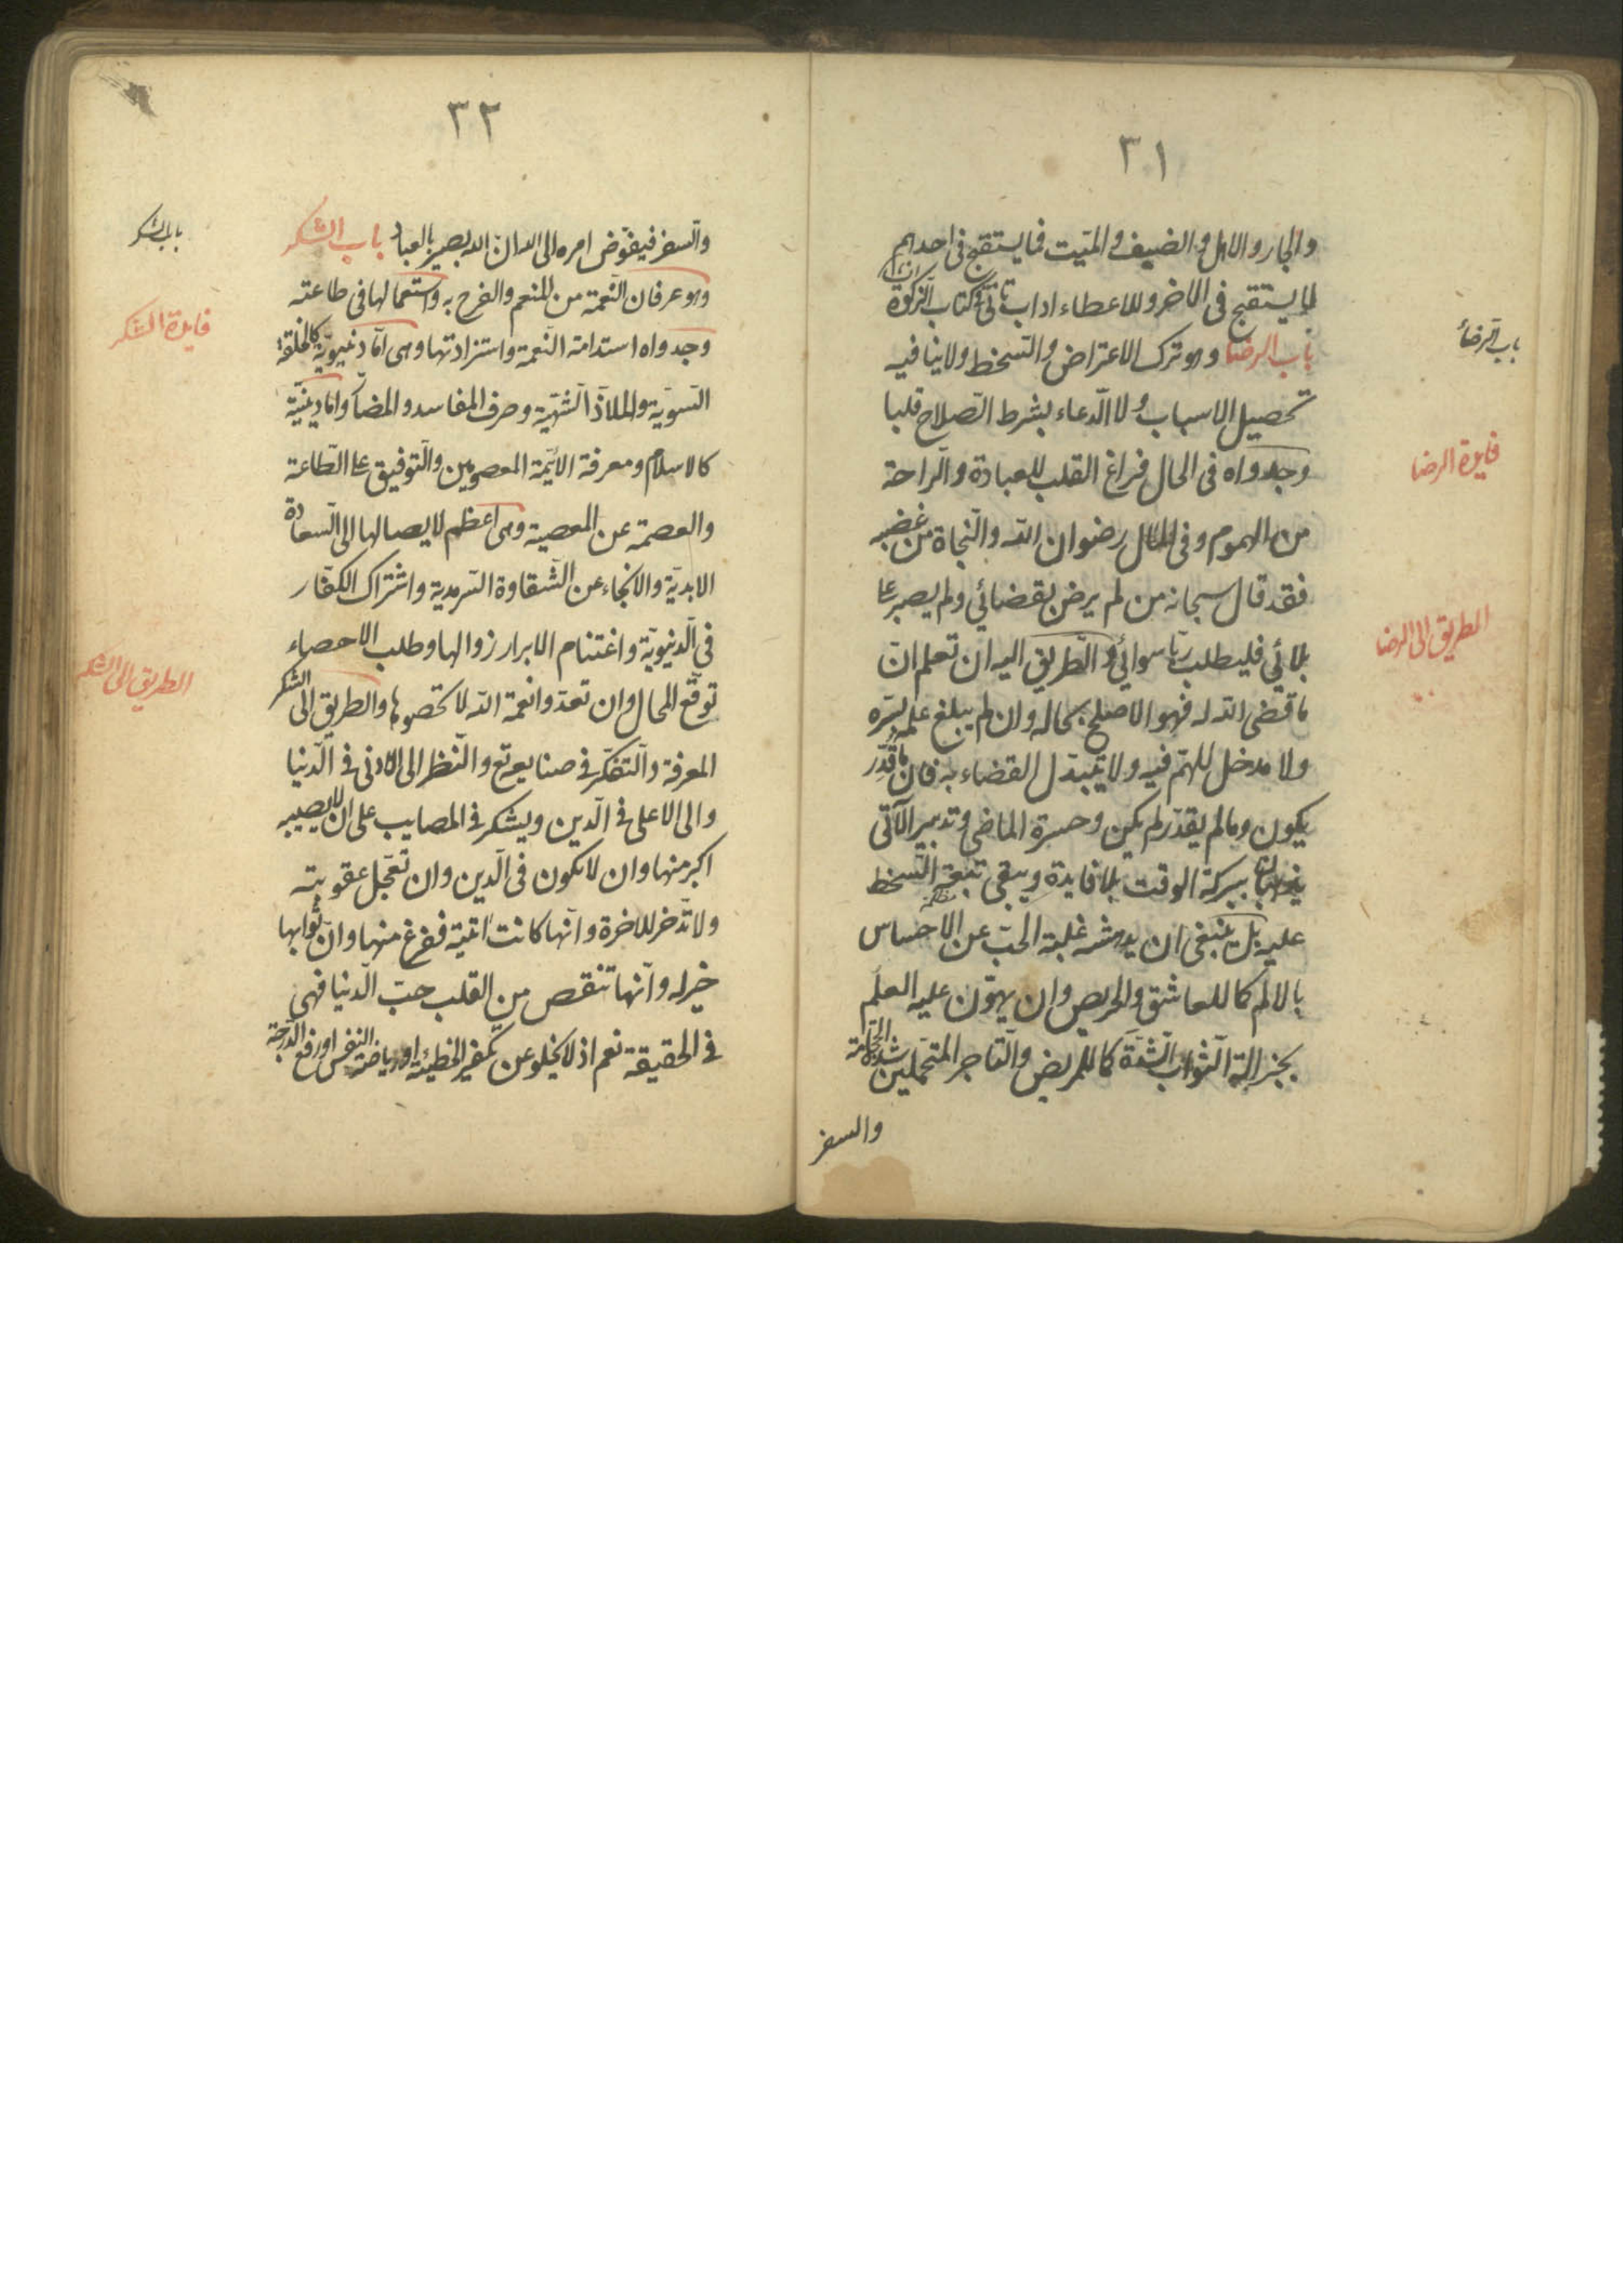 ٣١
والجار والاهل والضيف والميّت فما يستقبح فى احدهم
لا يستقبح فى الاخر وللاعطاء اداب تأتى فى كتاب الزّكوة
باب الرضا وهو ترك الاعتراض والتّسخط ولا ينافيه
تحصيل الاسباب ولا الدّعاء بشرط الصّلاح قلبا
وجدواه فى الحال فراغ القلب للعبادة والرّاحة
من الهموم وفى المآل رضوان اللّه والنّجاة من غضبه
فقد قال سبحانه من لم يرض بقضائي ولم يصبر على
بلائي فليطلب ربّا سوائي والطّريق اليه ان تعلم انّ
ما قضى اللّه له فهو الاصلح بحاله وان لم يبلغ علمه بسرّه
ولا مدخل للهمّ فيه ولا يتبدّل القضاء به فان ما قُدّر
يكون وما لم يقدّر لم يكن وحسرة الماضى وتدبير الآتى
يذهبان ببركة الوقت بلا فايدة ويبقى تبعة التّسخط
عليه بل ينبغى ان يدهشه غلبة الحبّ عن الاحساس
بالالم كما للعاشق والحريص وان يهوّن عليه العلم
بجزالة الثّواب المشقّة كما للمريض والتّاجر المتحمّلين شدة الحجامة
والسفر
باب الرضا
فايدة الرضا
الطريق الى الرضا
٣٢
والسفر فيفوّض امره الى الله انّ الله بصير بالعباد باب الشكر
وهو عرفان النّعمة من المنعم والفرح به واستعمالها فى طاعته
وجدواه استدامة النّعمة واستزادتها وهى امّا دنيويّة كالخلقة
السّويّة والملاذّ الشّهيّة وصرف المفاسد والمضارّ وامّا دينيّة
كالاسلام ومعرفة الائمّة المعصومين والتّوفيق على الطّاعة
والعصمة عن المعصية وهى اعظم لايصالها الى السّعادة
الابديّة والانجاء عن الشّقاوة السّرمدية واشتراك الكفّار
فى الدّنيويّة واغتنام الابرار زوالها وطلب الاحصاء
توقّع المحال وان تعدّوا نعمة اللّه لا تحصوها والطريق الى الشكر
المعرفة والتّفكّر فى صنايعه تع والنّظر الى الادنى فى الدّنيا
والى الاعلى فى الدّين ويشكر فى المصايب على ان لا يصيبه
اكبر منها وان لا تكون فى الدّين وان تعجّل عقوبته
ولا تدّخر للاخرة وانّها كانت اتية ففرغ منها وانّ ثوابها
خير له وانّها تنقص من القلب حبّ الدّنيا فهى
فى الحقيقة نعم اذ لا يخلو عن تكفير الخطيئة او رياضة النّفس او رفع الدّرجة
باب الشكر
فايدة الشكر
الطريق الى الشكر